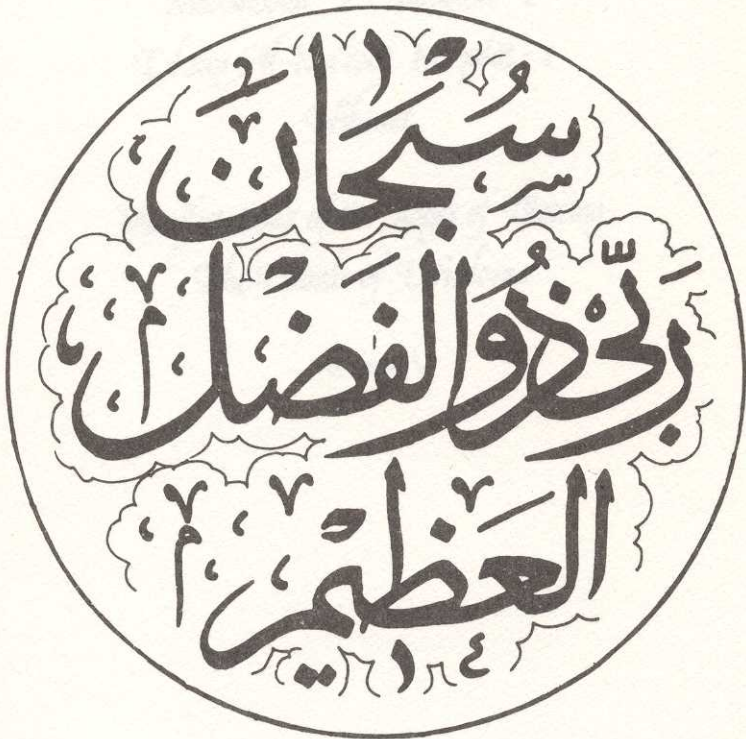 سُبْحَانَ
رَبِّيْ ذُو الْفَضْلِ
الْعَظِيْمِ